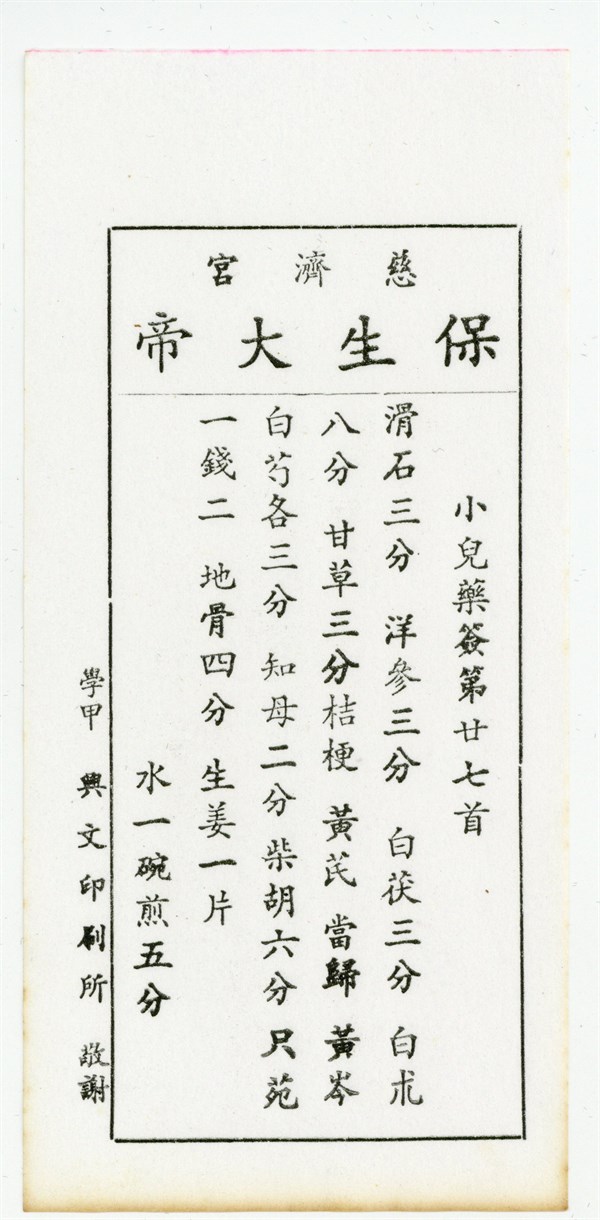 慈濟宮
保生大帝
小兒藥簽第廿七首
滑石三分 洋參三分 白茯三分 白朮
八分 甘草三分桔梗 黃芪 當歸 黃岑
白芍各三分 知母二分柴胡六分 只苑
一錢二 地骨四分 生姜一片
水一碗煎五分
學甲 興文印刷所 敬謝